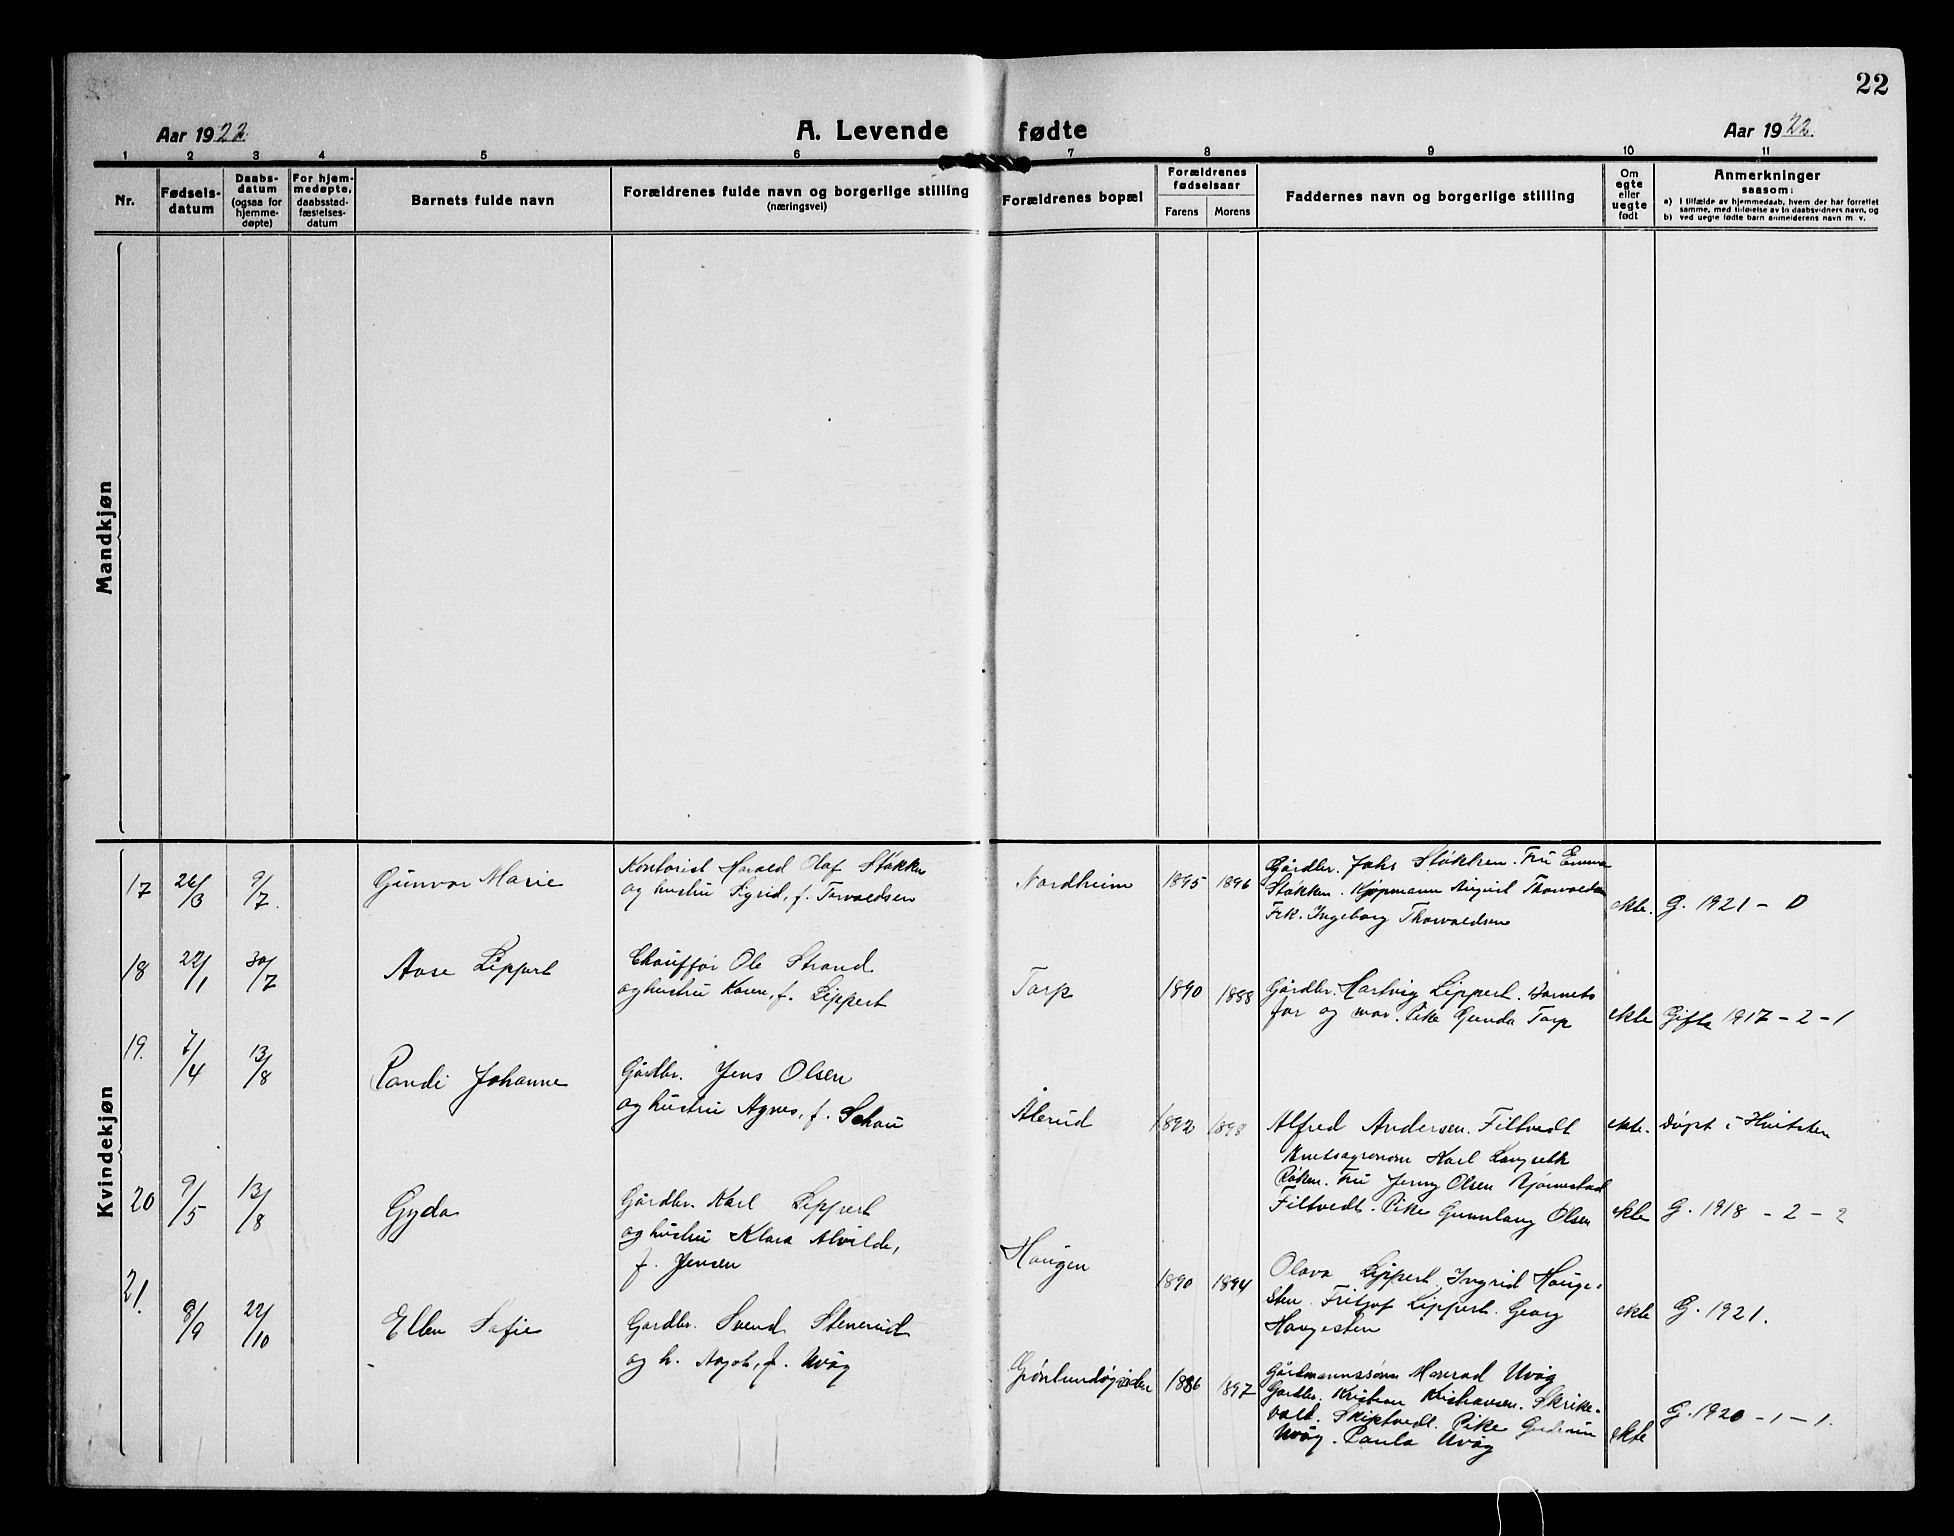 22
Aar 1922.
A. Levende fødte
Aar 1922.
1 2 3 4 5 6 7 8 9 10 11
Nr.
Fødselsdatum
Daabsdatum
(ogsaa for
hjemmedøpte)
For hjemmedøpte,
daabsstadfæstelsesdatum
Barnets fulde navn
Forældrenes fulde navn og borgerlige stilling
(næringsvei)
Forældrenes bopæl
Forældrenes
fødselsaar
Farens Morens
Faddernes navn og borgerlige stilling
Om
egte
eller
uegte
født
Anmerkninger
saasom:
a) I tilfælde av hjemmedaab, hvem der har forrettet
samme, med tilføielse av to daabsvidners navn, og
b) ved uegte fødte barn anmelderens navn m. v.
Mandkjøn
Kvindekjøn
17 26/3 9/7. Gunvor Marie
Kontorist Harald Olaf Støkken
og hustru Sigrid, f. Torvaldsen
Nordheim 1895 1896
Gårdbr. Johs Støkken. Fru Emma
Støkken. Kjøpmann August Thorvaldsen
Frk. Ingeborg Thorvaldsen
ekte. G. 1921 - 0
18 22/1 30/7 Aase Lippert
Chauffør Ole Strand
og hustru Karen, f. Lippert
Torp 1890 1888
Gårdbr. Hartvig Lippert. Barnets
far og mor. Pike Gunda Torp
ekte Gifte 1917 - 2 - 1
19. 7/4 13/8 Randi Johanne
Gårdbr. Jens Olsen
og hustru Agnes, f. Schou
Ålerud 1892 1898
Alfred Andersen. Filtvedt
Karl Langseth
Røken. Fru Jenny Olsen
Filtvedt. Pike Gunnlaug Olsen
ekte. Døpt i Hvitsten
ekte G. 1918 - 2 - 2
20 9/5 13/8 Gyda
Gårdbr. Karl Lippert
og hustru Klara Alvilde,
f. Jensen
Haugen 1890 1894
Olava Lippert. Ingrid Hauge-
sten. Fritjof Lippert. Georg
Haugesten
ekte G. 1921.
21. 8/9 22/10 Ellen Sofie
Gardbr. Svend Stenerud
og h. f. Uvåg
1886 1897
Gårdmannssønn Uvåg
Gardbr. Kristian Kristiansen. Skrike-
vold. Skiptvedt. Pike Gudrun
Uvåg. Paula Uvåg
ekte G. 1920 - 1 - 1.